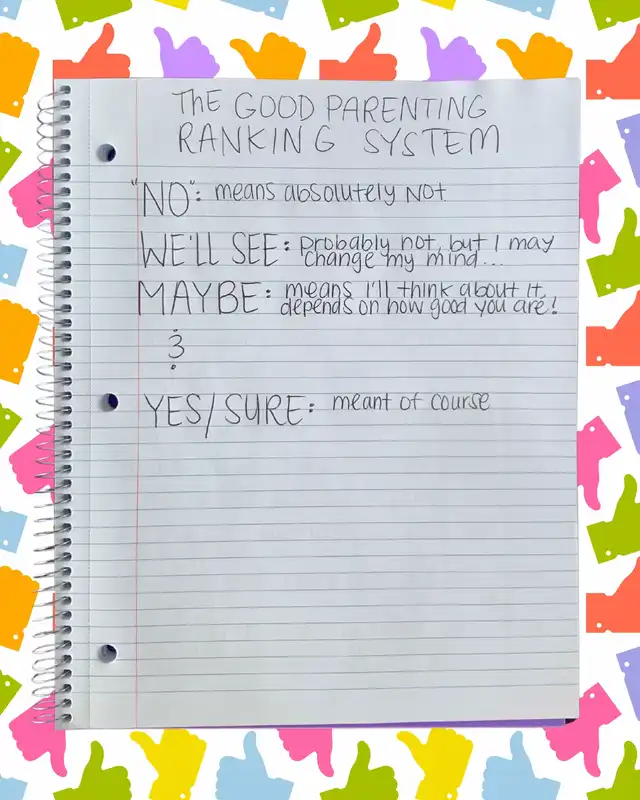 The GOOD PARENTING
RANKING SYSTEM
"NO": means absolutely NOT
WE'LL SEE: probably not, but I may
change my mind...
MAYBE: means I'll think about it,
depends on how good you are!
&
YES/SURE: meant of course